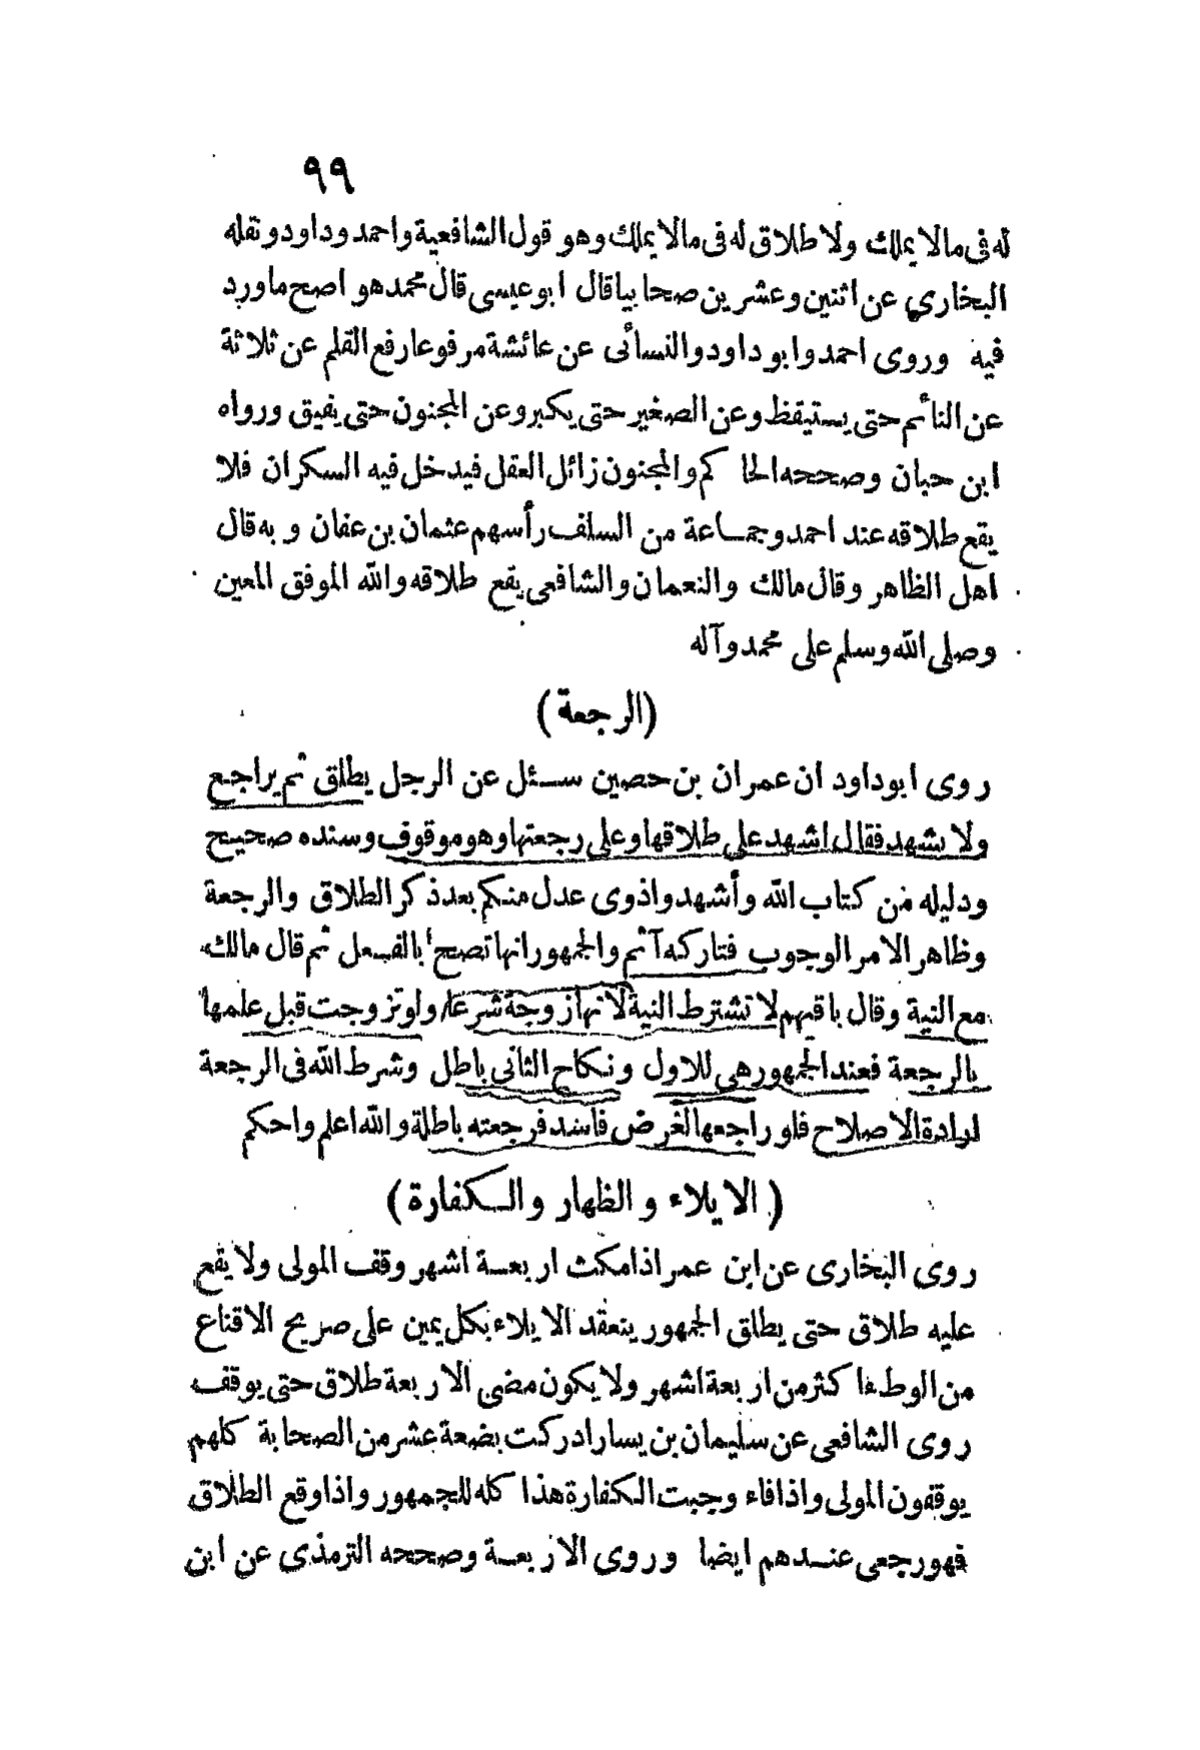 ٩٩
له فى مالا يملك ولا طلاق له فى مالا يملك وهو قول الشافعية واحمد وداود ونقله
البخاري عن اثنين وعشرين صحابيا قال ابو عيسى قال محمد هو اصح ما ورد
فيه وروى احمد وابو داود والنسائى عن عائشة مرفوعا رفع القلم عن ثلاثة
عن النائم حتى يستيقظ وعن الصغير حتى يكبر وعن المجنون حتى يفيق ورواه
ابن حبان وصححه الحاكم والمجنون زائل العقل فيدخل فيه السكران فلا
يقع طلاقه عند احمد وجماعة من السلف رأسهم عثمان بن عفان وبه قال
اهل الظاهر وقال مالك والنعمان والشافعى يقع طلاقه والله الموفق المعين
وصلى الله وسلم على محمد وآله
(الرجعة)
روى ابوداود ان عمران بن حصين سئل عن الرجل يطلق ثم يراجع
ولا يشهد فقال اشهد على طلاقها وعلى رجعتها وهو موقوف وسنده صحيح
ودليله من كتاب الله وأشهدوا ذوى عدل منكم بعد ذكر الطلاق والرجعة
وظاهر الامر الوجوب فتاركه آثم والجمهور انها تصح بالفعل ثم قال مالك
مع النية وقال باقيهم لا تشترط النية لانها زوجة شرعا ولو تزوجت قبل علمها
بالرجعة فعند الجمهور هى للاول ونكاح الثانى باطل وشرط الله فى الرجعة
ارادة الاصلاح فلو راجعها لغرض فاسد فرجعته باطلة والله اعلم واحكم
(الايلاء والظهار والكفارة)
روى البخارى عن ابن عمر اذا مكث اربعة اشهر وقف المولى ولا يقع
عليه طلاق حتى يطلق الجمهور ينعقد الايلاء بكل يمين على صريح الاقناع
من الوطء فاكثر من اربعة اشهر ولا يكون مضى الاربعة طلاق حتى يوقف
روى الشافعى عن سليمان بن يسار ادركت بضعة عشر من الصحابة كلهم
يوقفون المولى واذا فاء وجبت الكفارة هذا كله للجمهور واذا وقع الطلاق
فهو رجعى عندهم ايضا وروى الاربعة وصححه الترمذى عن ابن